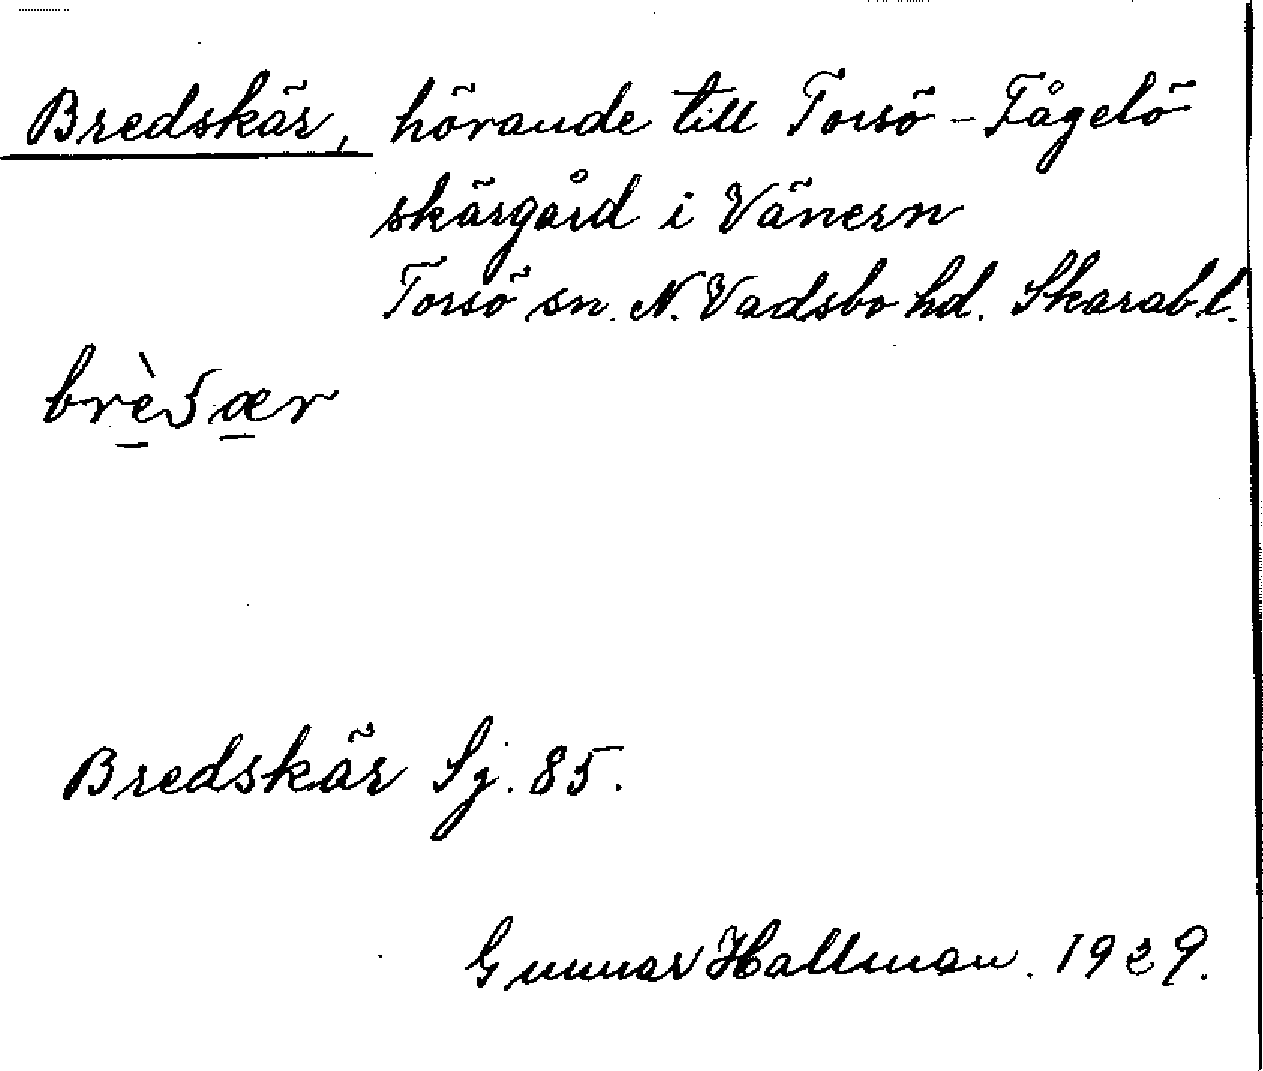 Bredskär, hörande till Torsö - Fågelö
skärgård i Vänern
Torsö sn. N. Vadsbo hd. Skarab l.
brèʃær
Bredskär Sj. 85.
Gunnar Hallman. 1929.